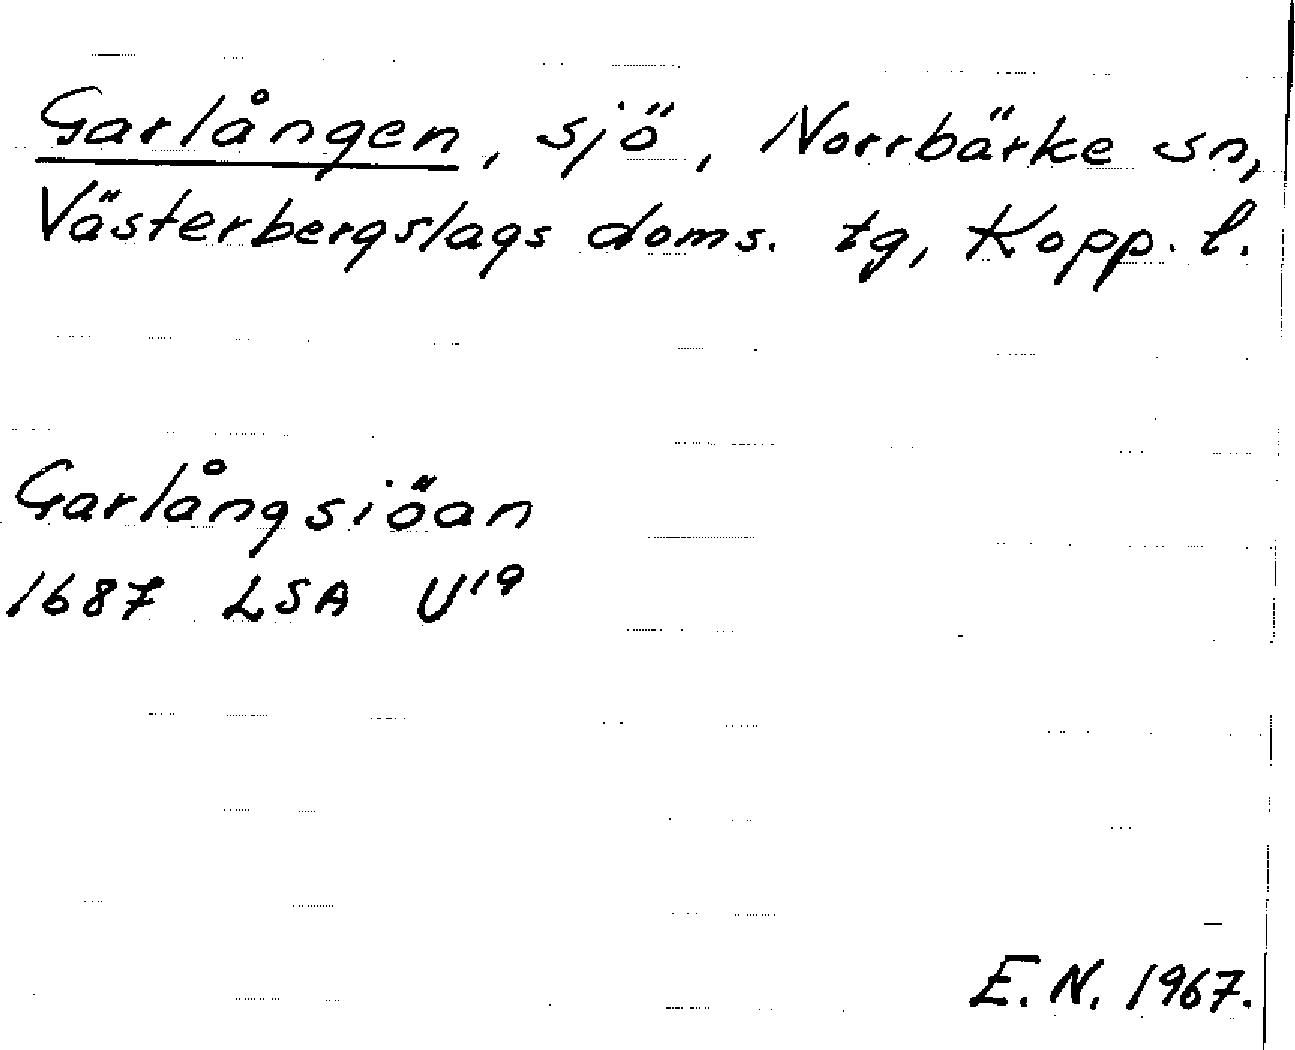 Garlången, sjö, Norrbärke sn,
Västerbergslags doms. tg, Kopp. l.
Garlångsiöan
1687 LSA U19
E. N. 1967.